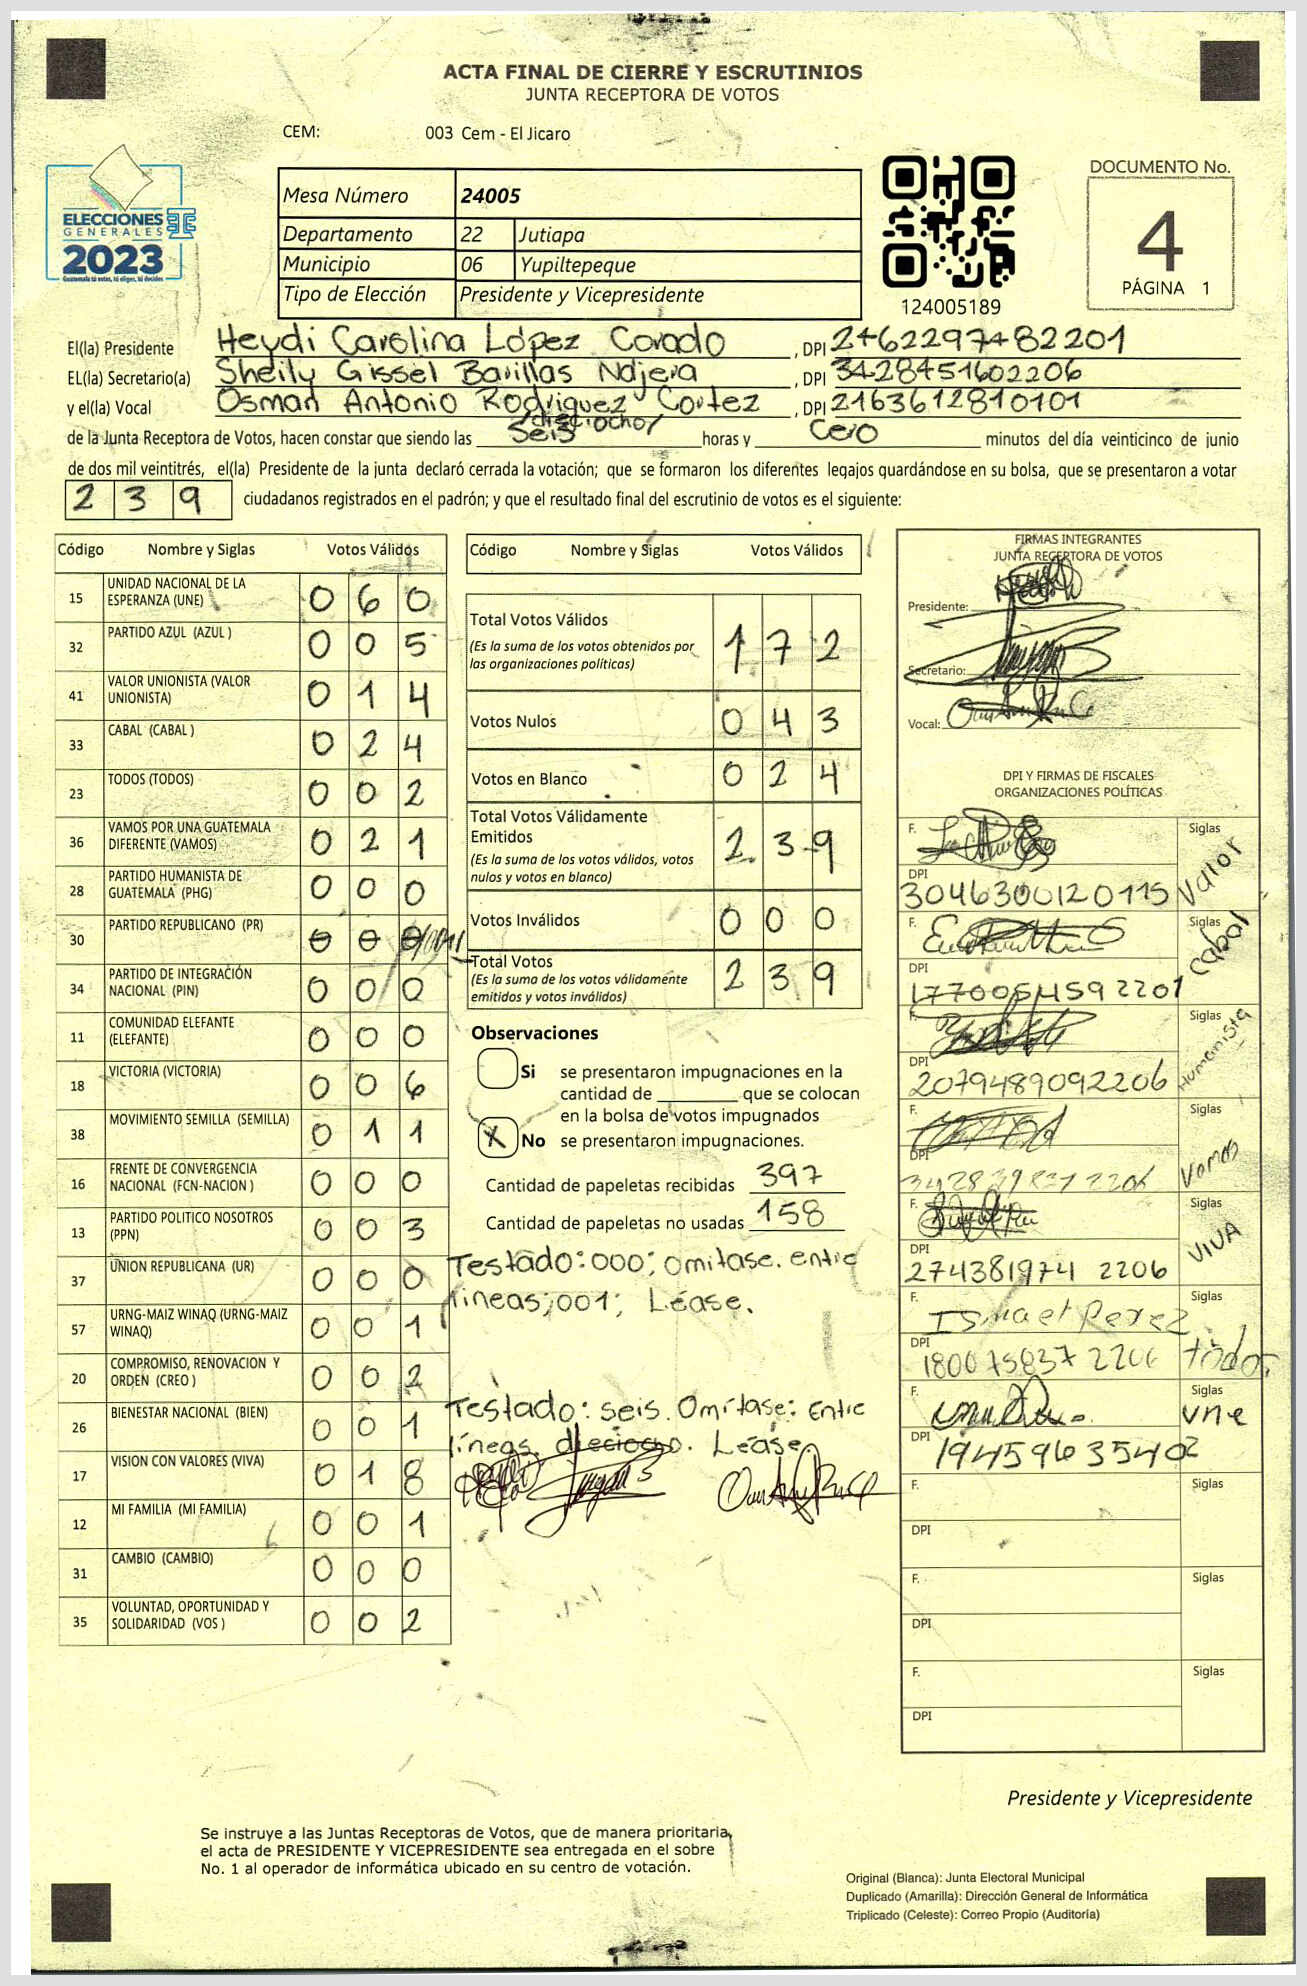 ACTA FINAL DE CIERRE Y ESCRUTINIOS
JUNTA RECEPTORA DE VOTOS
CEM: 003 Cem - El Jicaro
ELECCIONES
GENERALES
2023
Guatemala tú votas, tú eliges, tú decides
Mesa Número 24005
Departamento 22 Jutiapa
Municipio 06 Yupiltepeque
Tipo de Elección Presidente y Vicepresidente
124005189
DOCUMENTO No.
4
PÁGINA 1
El(la) Presidente Heydi Carolina López Corado, DPI 2462297482201
EL(la) Secretario(a) Sheily Gissel Barillas Najera, DPI 3428451602206
y el(la) Vocal Osman Antonio Rodriguez Cortez, DPI 2163612810101
/dieciocho/
de la Junta Receptora de Votos, hacen constar que siendo las Seis horas y Cero minutos del día veinticinco de junio
de dos mil veintitrés, el(la) Presidente de la junta declaró cerrada la votación; que se formaron los diferentes legajos guardándose en su bolsa, que se presentaron a votar
239 ciudadanos registrados en el padrón; y que el resultado final del escrutinio de votos es el siguiente:
Código Nombre y Siglas Votos Válidos
15 UNIDAD NACIONAL DE LA ESPERANZA (UNE) 0 6 0
32 PARTIDO AZUL (AZUL ) 0 0 5
41 VALOR UNIONISTA (VALOR UNIONISTA) 0 1 4
33 CABAL (CABAL ) 0 2 4
23 TODOS (TODOS) 0 0 2
36 VAMOS POR UNA GUATEMALA DIFERENTE (VAMOS) 0 2 1
28 PARTIDO HUMANISTA DE GUATEMALA (PHG) 0 0 0
30 PARTIDO REPUBLICANO (PR) 0 0 0 /001/
34 PARTIDO DE INTEGRACIÓN NACIONAL (PIN) 0 0 0
11 COMUNIDAD ELEFANTE (ELEFANTE) 0 0 0
18 VICTORIA (VICTORIA) 0 0 6
38 MOVIMIENTO SEMILLA (SEMILLA) 0 1 1
16 FRENTE DE CONVERGENCIA NACIONAL (FCN-NACION ) 0 0 0
13 PARTIDO POLITICO NOSOTROS (PPN) 0 0 3
37 UNION REPUBLICANA (UR) 0 0 0
57 URNG-MAIZ WINAQ (URNG-MAIZ WINAQ) 0 0 1
20 COMPROMISO, RENOVACION Y ORDEN (CREO ) 0 0 2
26 BIENESTAR NACIONAL (BIEN) 0 0 1
17 VISION CON VALORES (VIVA) 0 1 8
12 MI FAMILIA (MI FAMILIA) 0 0 1
31 CAMBIO (CAMBIO) 0 0 0
35 VOLUNTAD, OPORTUNIDAD Y SOLIDARIDAD (VOS ) 0 0 2
Código Nombre y Siglas Votos Válidos
Total Votos Válidos 1 7 2
(Es la suma de los votos obtenidos por
las organizaciones políticas)
Votos Nulos 0 4 3
Votos en Blanco 0 2 4
Total Votos Válidamente
Emitidos 2 3 9
(Es la suma de los votos válidos, votos
nulos y votos en blanco)
Votos Inválidos 0 0 0
Total Votos 2 3 9
(Es la suma de los votos válidamente
emitidos y votos inválidos)
Observaciones
Si se presentaron impugnaciones en la
cantidad de ________ que se colocan
en la bolsa de votos impugnados
X No se presentaron impugnaciones.
Cantidad de papeletas recibidas 397
Cantidad de papeletas no usadas 158
Testado: 000; omitase. entre
lineas; 001; Léase.
Testado: seis. Omítase: Entre
líneas. dieciocho. Léase
FIRMAS INTEGRANTES
JUNTA RECEPTORA DE VOTOS
Presidente:
Secretario:
Vocal:
DPI Y FIRMAS DE FISCALES
ORGANIZACIONES POLÍTICAS
F. Siglas Valor
DPI 3046300120115
F. Siglas Cabal
DPI
F. Siglas Humanista
DPI 2079489092206
F. Siglas Vamos
DPI
F. Siglas VIVA
DPI 274381974 2206
F. Ismael Perez Siglas todos
DPI 180075837 2206
F. Siglas une
DPI 19459635402
F. Siglas
DPI
F. Siglas
DPI
F. Siglas
DPI
Presidente y Vicepresidente
Se instruye a las Juntas Receptoras de Votos, que de manera prioritaria,
el acta de PRESIDENTE Y VICEPRESIDENTE sea entregada en el sobre
No. 1 al operador de informática ubicado en su centro de votación.
Original (Blanca): Junta Electoral Municipal
Duplicado (Amarilla): Dirección General de Informática
Triplicado (Celeste): Correo Propio (Auditoría)